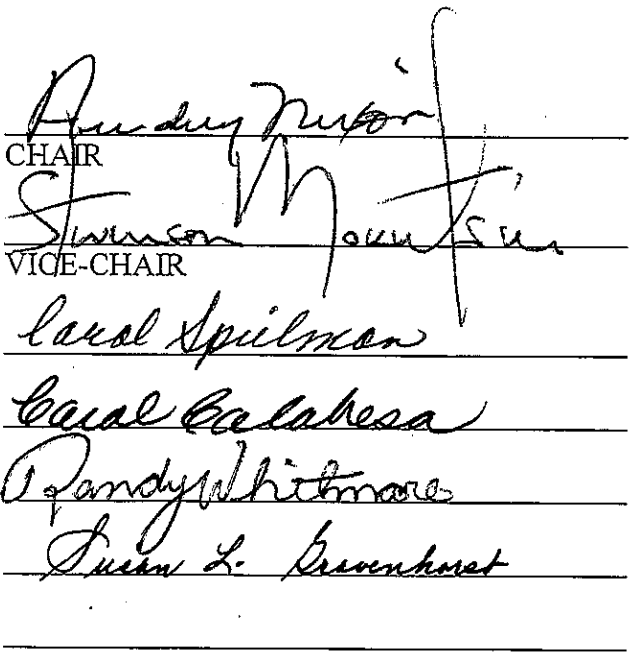 Audrey Nixon
CHAIR
Stevenson Mountsier
VICE-CHAIR
Carol Spielman
Carol Calabresa
Randy Whitmore
Susan L. Gravenhorst